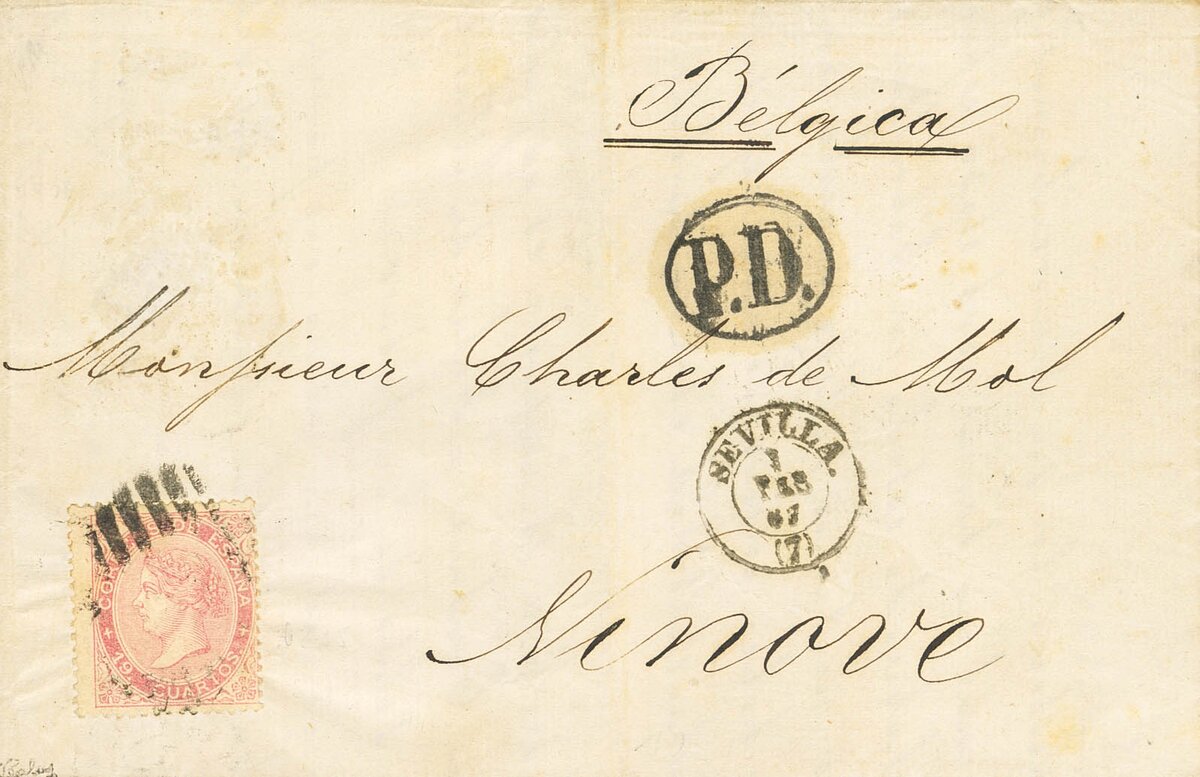 Bélgica
P.D.
Monsieur Charles de Mol
SEVILLA.
FEB
67
(7)
CORREOS DE ESPAÑA
19 CUARTOS
Ninove